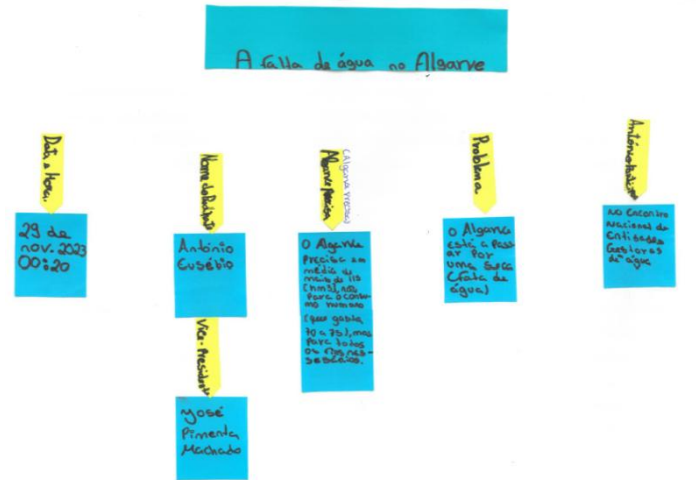 A falta de água no Algarve
Data e Hora
29 de
nov. 2023
00:20
António
Eusébio
Vice-Presidente
José
Pimenta
Machado
(Algarve precisa)
Algarve precisa
O Algarve
precisa em
média de
mais de 110
para o consu
mo humano
(que gasta
70 a 75), mas
para todos
os
Problema
O Algarve
está a pass
ar por
uma seca
(falta de
água)
no Encontro
Nacional de
Entidades
Gestoras
de água